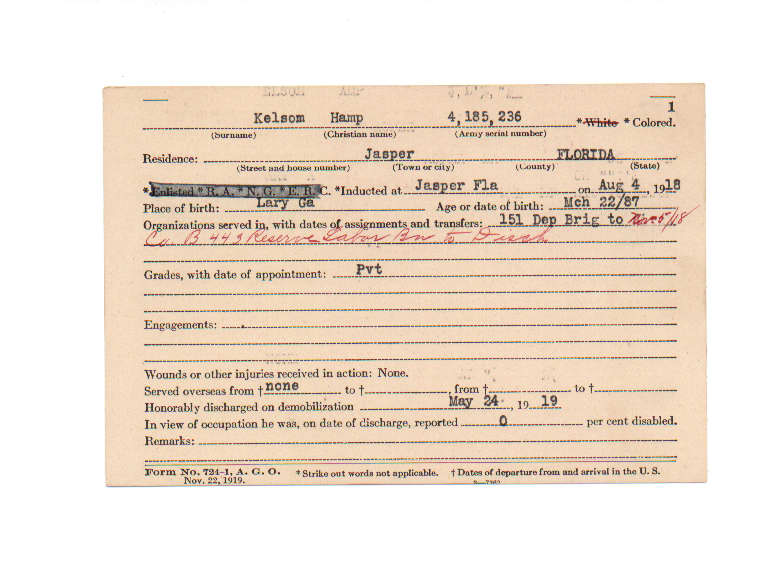 1
Kelsom Hamp 4,185,236 *White *Colored.
(Surname) (Christian name) (Army serial number)
Residence: Jasper FLORIDA
(Street and house number) (Town or city) (County) (State)
*Enlisted *R. A. *N. G. *E. R. C. *Inducted at Jasper Fla on Aug 4, 1918
Place of birth: Lary Ga Age or date of birth: Mch 22/87
Organizations served in, with dates of assignments and transfers: 151 Dep Brig to Nov 5/18
Co. B 443 Reserve Labor Bn to Disch
Grades, with date of appointment: Pvt
Engagements:
Wounds or other injuries received in action: None.
Served overseas from † none to †, from † to †
Honorably discharged on demobilization May 24, 1919
In view of occupation he was, on date of discharge, reported 0 per cent disabled.
Remarks:
Form No. 724-1, A. G. O. *Strike out words not applicable. †Dates of departure from and arrival in the U. S.
Nov. 22, 1919.